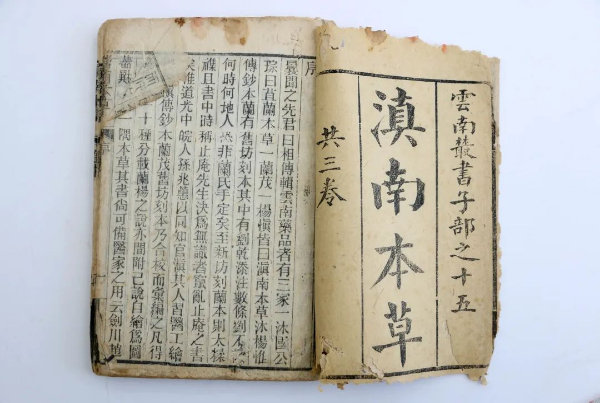 雲南叢書子部之十五
滇南本草
共三卷
序
曩聞之先君
曰相傳輯雲南藥品者有三家一沐國公
琮曰苴蘭本
草一蘭茂一楊慎皆曰滇南本草沐楊惟
傳鈔本蘭有
舊坊刻本其中有劉乾添注數條劉不
何時何地人
非蘭氏手定矣至新坊刻蘭本則太糅
襍且書中時
稱止庵先生決爲無識者竄亂止庵之書
矣惟道光中
皖人孫兆蕙以同知官滇其人習醫工繪
傳鈔
本蘭茂舊坊刻本乃合校而彙編之凡得
十種分載蘭楊之說亦間附己說自繪爲圖
隅本草其書尙可備醫家之用云劍川趙